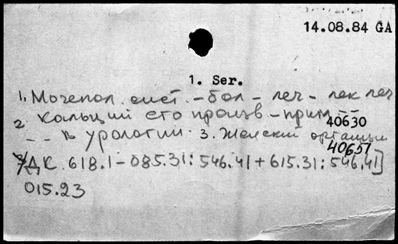 14.08.84 GA
1. Ser.
1. Мочепол. сист. - бол - леч - лек леч
2. Кальций его произв - прим 40630
- - в урологии. 3. Женский организм
40651
УДК. 618.1-085.31:546.41+615.31:546.41]
015.23